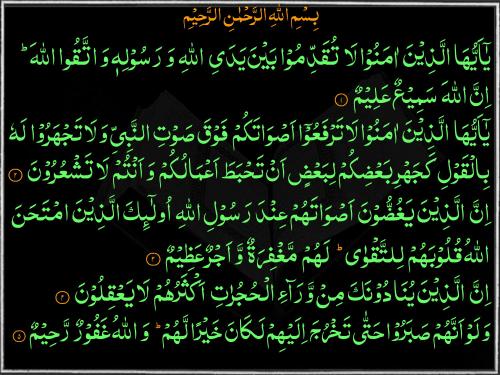 بِسْمِ اللهِ الرَّحْمٰنِ الرَّحِيْمِ
يٰۤاَيُّهَا الَّذِيْنَ اٰمَنُوْا لَا تُقَدِّمُوْا بَيْنَ يَدَيِ اللهِ وَ رَسُوْلِهٖ وَ اتَّقُوا اللهَ ؕ
اِنَّ اللهَ سَمِيْعٌ عَلِيْمٌ ۱
يٰۤاَيُّهَا الَّذِيْنَ اٰمَنُوْا لَا تَرْفَعُوْۤا اَصْوَاتَكُمْ فَوْقَ صَوْتِ النَّبِيِّ وَ لَا تَجْهَرُوْا لَهٗ
بِالْقَوْلِ كَجَهْرِ بَعْضِكُمْ لِبَعْضٍ اَنْ تَحْبَطَ اَعْمَالُكُمْ وَ اَنْتُمْ لَا تَشْعُرُوْنَ ۲
اِنَّ الَّذِيْنَ يَغُضُّوْنَ اَصْوَاتَهُمْ عِنْدَ رَسُوْلِ اللهِ اُولٰٓئِكَ الَّذِيْنَ امْتَحَنَ
اللهُ قُلُوْبَهُمْ لِلتَّقْوٰى ؕ لَهُمْ مَّغْفِرَةٌ وَّ اَجْرٌ عَظِيْمٌ ۳
اِنَّ الَّذِيْنَ يُنَادُوْنَكَ مِنْ وَّرَآءِ الْحُجُرٰتِ اَكْثَرُهُمْ لَا يَعْقِلُوْنَ ۴
وَ لَوْ اَنَّهُمْ صَبَرُوْا حَتّٰى تَخْرُجَ اِلَيْهِمْ لَكَانَ خَيْرًا لَّهُمْ ؕ وَ اللهُ غَفُوْرٌ رَّحِيْمٌ ۵